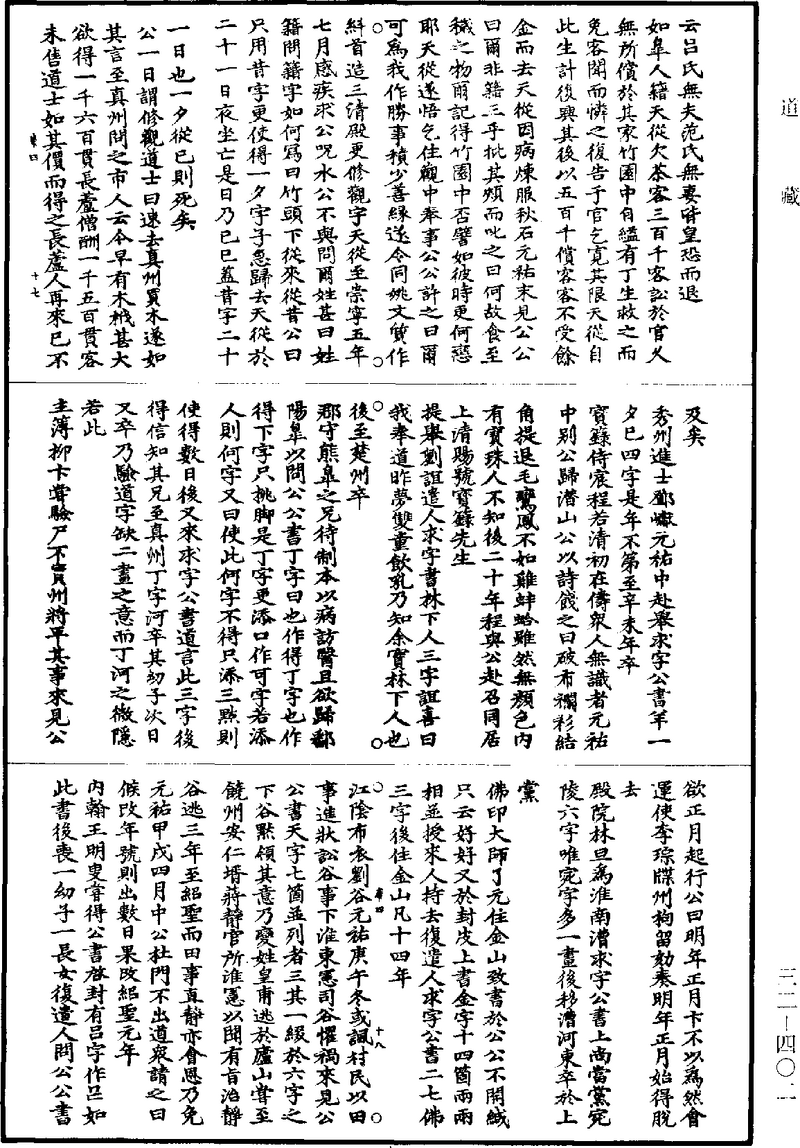 道藏
云呂氏無夫范氏無妻皆皇恐而退
如皐人籍天從欠本客三百千客訟於官久
無所償於其家竹園中自縊有丁生救之而
免客聞而憐之復告于官乞寬其限天從自
此生計復興其後以五百千償客客不受餘
金而去天從因病煉服秋石元祐末見公公
曰爾非籍三乎批其頰而叱之曰何故食至
穢之物爾記得竹園中否譬如彼時更何戀
耶天從遂悟乞住觀中奉事公公許之曰爾
可爲我作勝事積少善緣遂令同姚文質作
糾首造三清殿更修觀宇天從至崇寧五年
七月感疾求公呪水公不與問爾姓甚曰姓
籍問籍字如何寫曰竹頭下從耒從昔公曰
只用昔字更使得一夕字子急歸去天從於
二十一日夜坐亡是日乃己巳蓋昔字二十
一日也一夕從巳則死矣
公一日謂修觀道士曰速去真州買木遂如
其言至真州問之市人云今早有木栰甚大
欲得一千六百貫長蘆僧酬一千五百貫客
未售道士如其價而得之長蘆人再來已不
及矣
秀州進士鄧㠓元祐中赴舉求字公書羊一
夕巳四字是年不第至辛未年卒
寳籙侍宸程若清初在儔衆人無識者元祐
中別公歸潛山公以詩餞之曰破布襴衫結
角提退毛鸞鳳不如雞蚌蛤雖然無顏色内
有寳珠人不知後二十年程與公赴召同居
上清賜號寳籙先生
提舉劉誼遣人求字書林下人三字誼喜曰
我奉道昨夢雙童飲乳乃知余實林下人也
後至楚州卒
郡守熊皐之兄待制本以病訪醫且欲歸鄱
陽皐以問公公書丁字曰也作得丁字也作
得下字只挑脚是丁字更添口作可字若添
人則何字又曰使此何字不得只添三點則
使得數日後又來求字公書道言此三字後
得信知其兄至真州丁字河卒其幼子次日
又卒乃驗道字缺二畫之意而丁河之微隱
若此
主簿柳卞嘗驗尸不實州將平其事來見公
欲正月起行公曰明年正月卞不以爲然會
運使李琮牒州拘留劾奏明年正月始得脫
去
殿院林旦爲淮南漕求字公書上尚當黨宛
陵六字唯宛字多一畫後移漕河東卒於上
黨
佛印大師了元住金山致書於公公不開緘
只云好好又於封皮上書金字十四箇兩兩
相並授來人持去復遣人求字公書二七佛
三字後住金山凡十四年
江陰布衣劉谷元祐庚午冬或諷村民以田
事進狀訟谷事下淮東憲司谷懼禍來見公
公書天字七箇並列者三其一綴於六字之
下谷黙領其意乃變姓皇甫逃於廬山嘗至
饒州安仁壻蔣靜官所淮憲以聞有旨治靜
谷逃三年至紹聖而田事直靜亦會恩乃免
元祐甲戌四月中公杜門不出道衆請之曰
候改年號則出數日果改紹聖元年
内翰王明叟嘗得公書啓封有呂字作吕如
此書後喪一幼子一長女復遣人問公公書
三二—四〇二